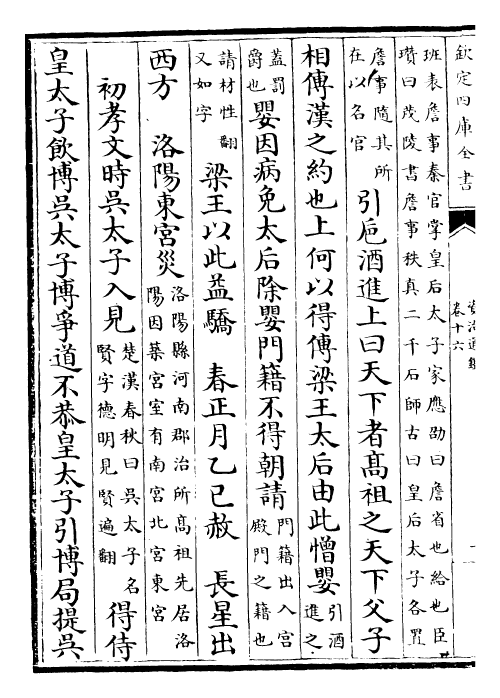 欽定四庫全書
資治通鑑
卷十六
班表詹事秦官掌皇后太子家應劭曰詹省也給也臣
瓚曰茂陵書詹事秩真二千石師古曰皇后太子各置
詹事隨其所
在以名官
引巵酒進上曰天下者髙祖之天下父子
相傳漢之約也上何以得傳梁王太后由此憎嬰
引酒
進之
蓋罰
爵也
嬰因病免太后除嬰門籍不得朝請
門籍出入宮
殿門之籍也
請材性翻
又如字
梁王以此益驕　春正月乙巳赦　長星出
西方　洛陽東宮災
洛陽縣河南郡治所髙祖先居洛
陽因築宮室有南宮北宮東宮
初孝文時吳太子入見
楚漢春秋曰吳太子名
賢字德明見賢遍翻
得侍
皇太子飲博吳太子博爭道不恭皇太子引博局提吳